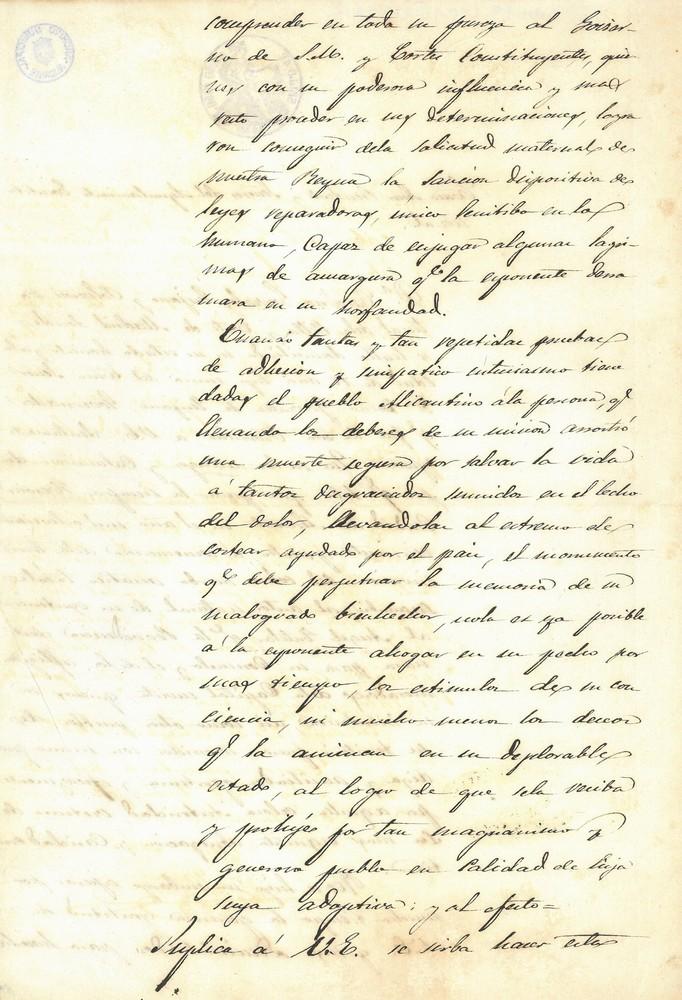 comprender en toda su pureza al Gobier-
no de S.M. y Cortes Constituyentes, quie
nes con su poderosa influencia y mas
recto proceder en sus determinaciones, logra
ron conseguir dela solicitud maternal de
nuestra Reyna la sancion dispositiva de
leyes reparadoras, único lenitibo en lo
humano, Capaz de enjugar algunas lagri-
mas de amargura qe la exponente derra
mara en su horfandad.
Cuando tantas y tan repetidas pruebas
de adhesion y simpatico entusiasmo tiene
dadas el pueblo Alicantino ála persona, qe
llenando los deberes de su mision arrostró
una muerte segura por salvar la vida
á tantos desgraciados sumidos en el lecho
del dolor, llevandolas al estremo de
costear ayudado por el pais, el monumento
qe debe perpetuar la memoria de su
malogrado bienhechor, nola es ya posible
á la exponente ahogar en su pecho por
mas tiempo, los estimulos de su con
ciencia, ni mucho menos los deseos
qe la animan en su deplorable
estado, al logro de que sela reciba
y prohije por tan magnanimo y
generoso pueblo en Calidad de hija
suya adoptiva: y al efecto=
Suplica á V.E. se sirba hacer esta